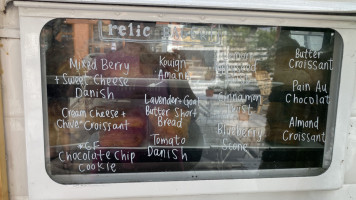 relic
Mixed Berry
+ Sweet Cheese
Danish
Cream Cheese +
Chive Croissant
*GF
Chocolate Chip
Cookie
Kouign
Amann
Lavender + Goat
Butter Short
Bread
Tomato
Danish
Cinnamon
Twist
Blueberry
Scone
Butter
Croissant
Pain Au
Chocolat
Almond
Croissant